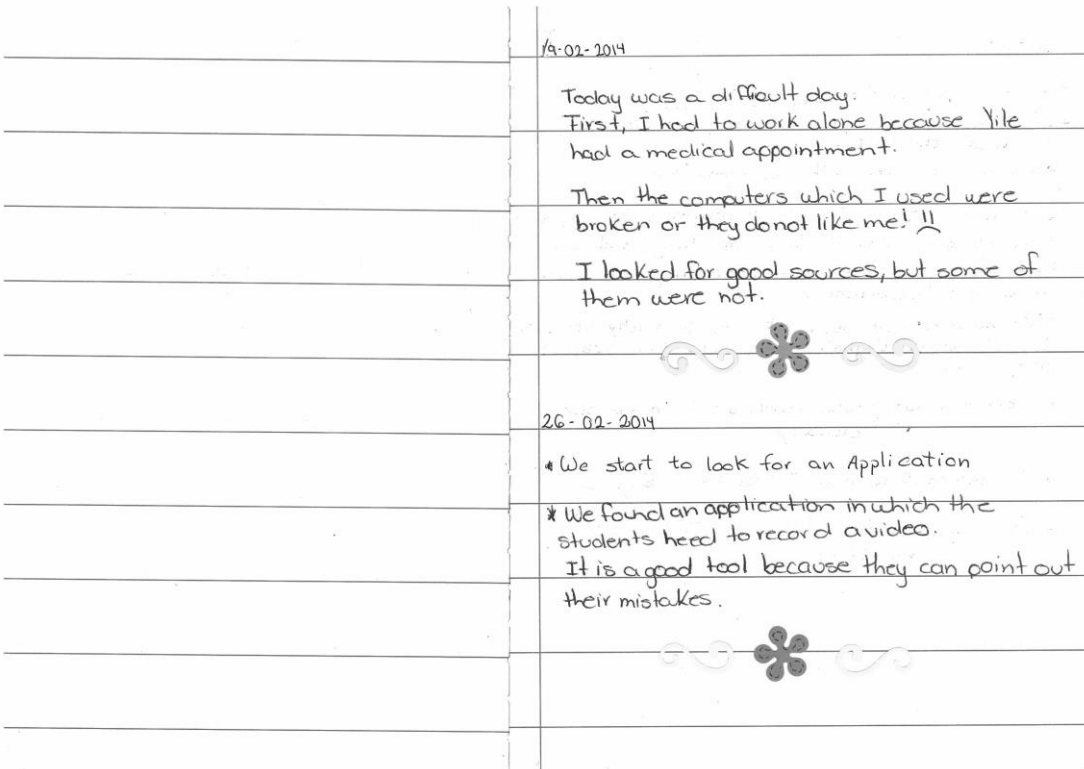 19-02-2014
Today was a difficult day.
First, I had to work alone because Yile
had a medical appointment.
Then the computers which I used were
broken or they do not like me!
I looked for good sources, but some of
them were not.
26-02-2014
* We start to look for an Application
* We found an application in which the
students need to record a video.
It is a good tool because they can point out
their mistakes.